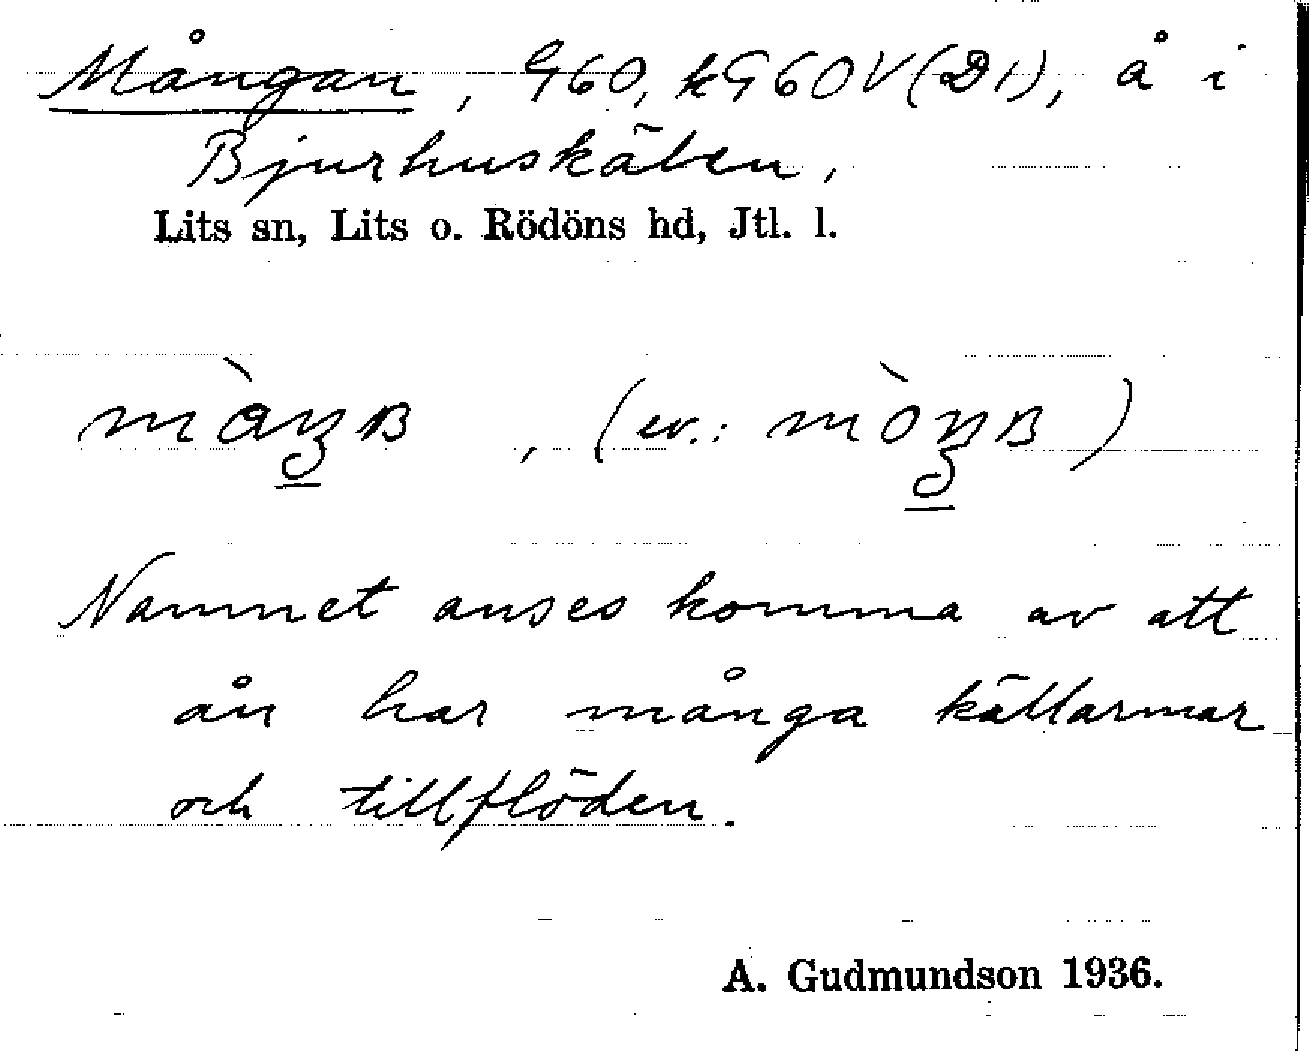 Mångan, G60, kG60V(D1), å i
Bjurhuskälen,
Lits sn, Lits o. Rödöns hd, Jtl. l.
, (ev.: )
Namnet anses komma av att
ån har många källarmar
och tillflöden.
A. Gudmundson 1936.